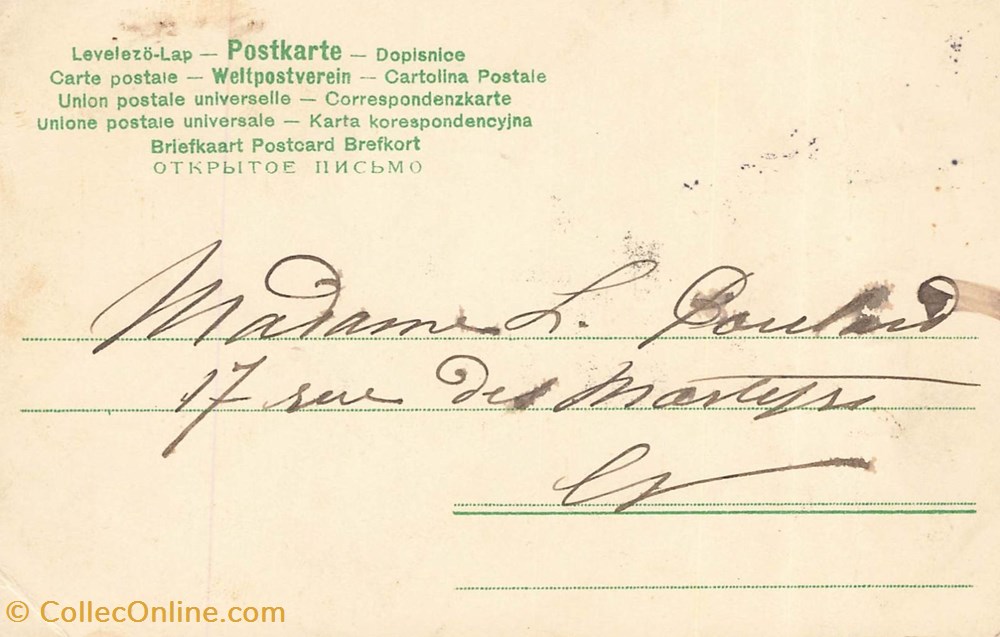 Levelezö-Lap — Postkarte — Dopisnice
Carte postale — Weltpostverein — Cartolina Postale
Union postale universelle — Correspondenzkarte
Unione postale universale — Karta korespondencyjna
Briefkaart Postcard Brefkort
ОТКРЫТОЕ ПИСЬМО
Madame L. Poulard
17 rue des Martyrs
© CollecOnline.com